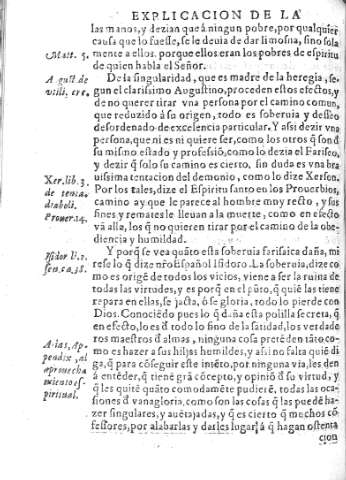 EXPLICACION DE LA
las manos, y dezian que á ningun pobre, por qualquier
causa que lo fuesse, se le deuia de dar limosna, sino sola
Matt. 5.
mente a ellos. porque ellos eran los pobres de espiritu
de quien habla el Señor.
August. de
De la singularidad, que es madre de la heregia, se-
gun el clarissimo Augustino, proceden estos efectos, y
de no querer tirar vna persona por el camino comun,
que reduzido á su origen, todo es soberuia y desseo
desordenado de excelencia particular. Y assi dezir vna
persona, que ni es ni quiere ser, como los otros q̃ son d̃
su mismo estado y professió, como lo dezia el Fariseo,
y dezir q̃ solo su camino es cierto, sin duda es vna bra
uissima tentacion del demonio, como lo dize Xerson.
Xer. lib. 3.
de tenta.
diaboli.
Prouer. 14.
Por los tales, dize el Espiritu santo en los Prouerbios,
camino ay que le parece al hombre muy recto, y sus
fines y remates le lleuan a la muerte, como en efecto
vā allá, los q̃ no quieren tirar por el camino de la obe-
diencia y humildad.
Isidor l. 2.
Y porq̃ se vea quāto esta soberuia farisaica daña, mi
rese lo q̃ dize nr̃o Español Isidoro. La soberuia, dize co
mo es origẽ de todos los vicios, viene a ser la ruina de
todas las virtudes, y es porq̃ en el pũto, q̃ quiẽ las tiene
repara en ellas, se jacta, ó se gloria, todo lo pierde con
Dios. Conociẽdo pues lo q̃ daña esta polilla secreta, q̃
en efeto, lo es d̃ todo lo fino de la satidad, los verdade
ros maestros d̃ almas, ninguna cosa pretẽden tãto co-
mo es hazer a sus hijas humildes, y assi no falta quiẽ di
ga, q̃ para cõseguir este intẽto, por ninguna via, les den
á entẽder, q̃ tienẽ grã cõcepto, y opiniõ d̃ su virtud, y
q̃ les quitẽ quãto comodamẽte pudierẽ, todas las oca-
siones d̃ vanagloria, como son las cosas q̃ las puedẽ ha-
zer singulares, y auẽtajadas, y q̃ es cierto q̃ muchos cõ
fessores, por alabarlas y darles lugar, á q̃ hagan ostenta
cion
aprouecha
miento es-
piritual.